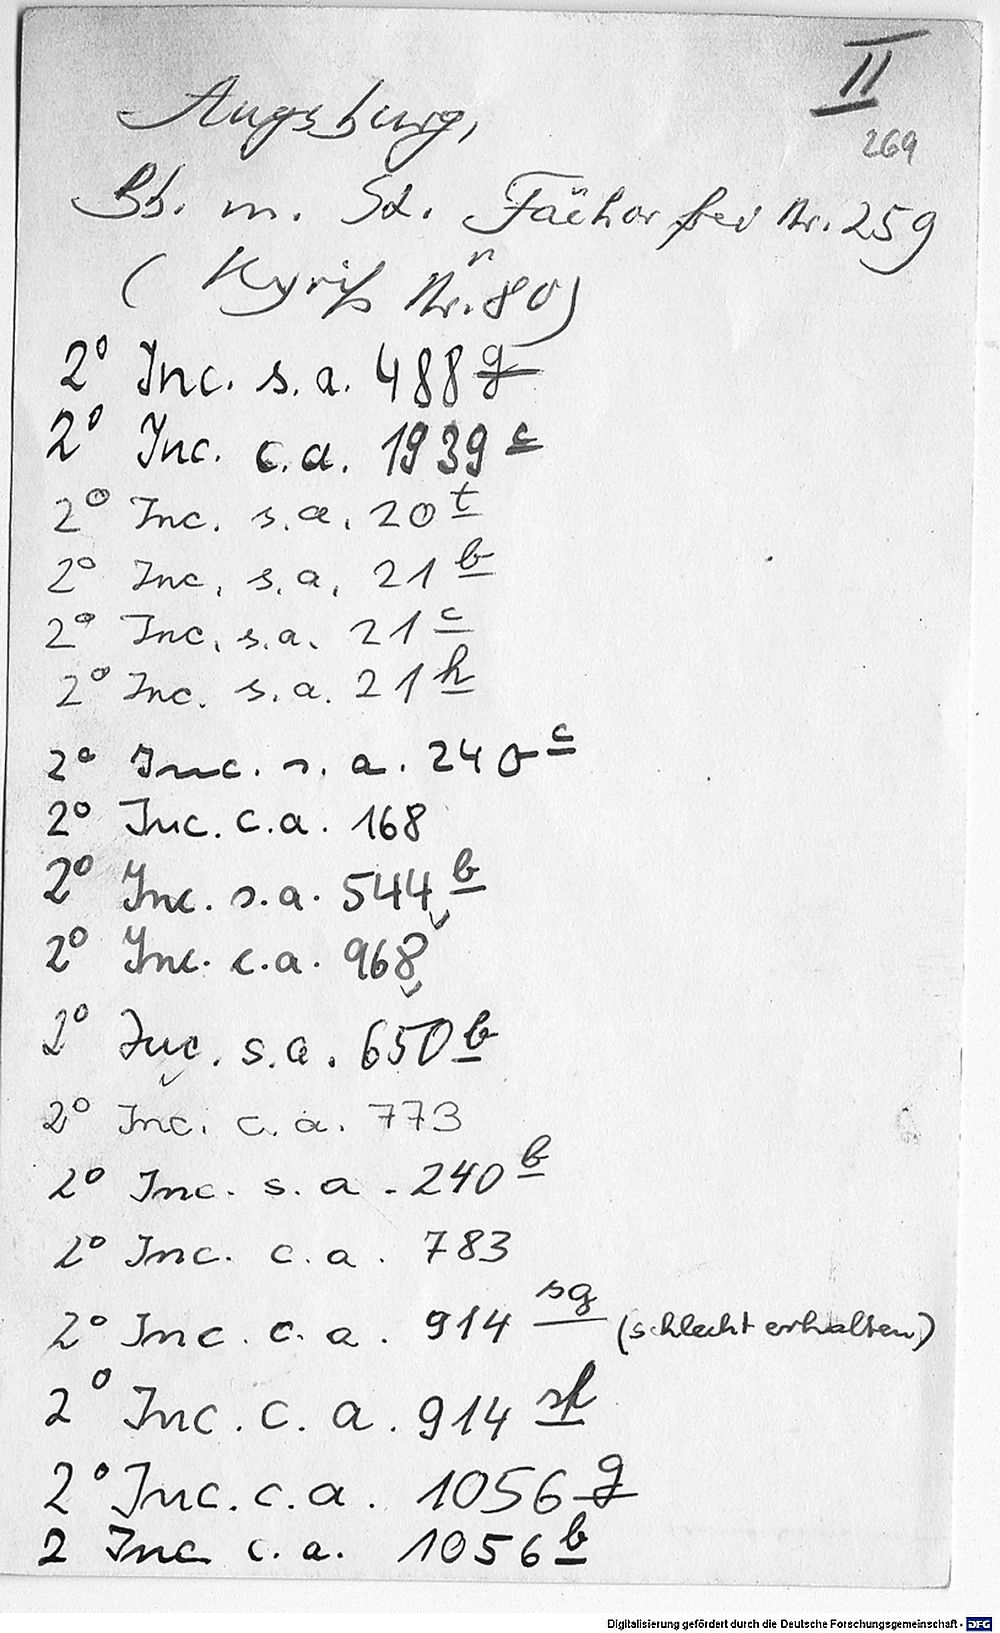 II
269
Augsburg,
Bb. m. St. Fächer frei Nr. 259
( Kyriß Nr. 80)
2° Inc. s. a. 488 g
2° Inc. c. a. 1939 c
2° Inc. s. a. 20 t
2° Inc. s. a. 21 b
2° Inc. s. a. 21 c
2° Inc. s. a. 21 h
2° Inc. s. a. 240 c
2° Inc. c. a. 168
2° Inc. s. a. 544 b
2° Inc. c. a. 968
2° Inc. s. a. 650 b
2° Inc. c. a. 773
2° Inc. s. a. 240 b
2° Inc. c. a. 783
2° Inc. c. a. 914 sg (schlecht erhalten)
2° Inc. c. a. 914
2° Inc. c. a. 1056 g
2 Inc c. a. 1056 b
Digitalisierung gefördert durch die Deutsche Forschungsgemeinschaft - DFG